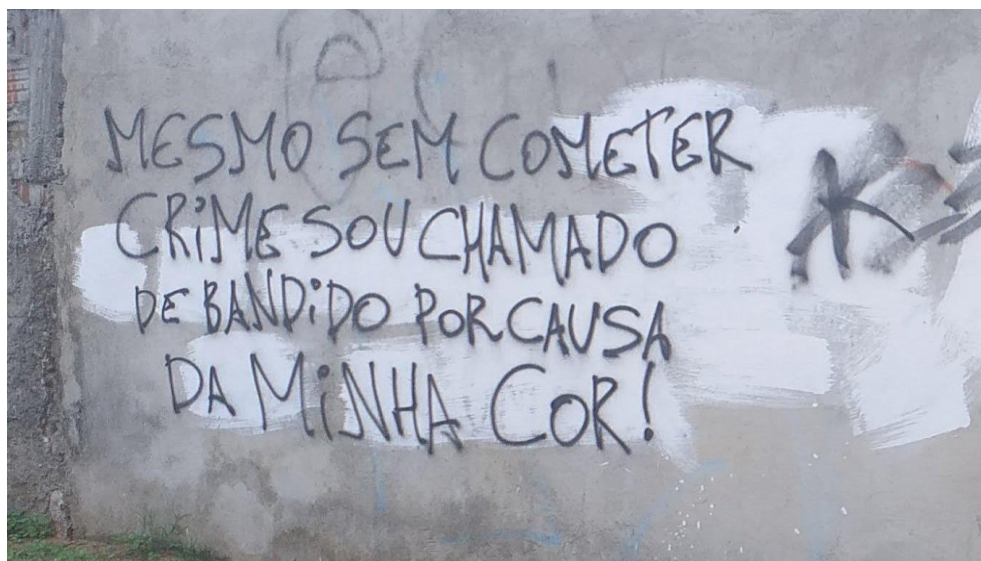 MESMO SEM COMETER
CRiME SOU CHAMADO
DE BANDiDO POR CAUSA
DA MiNHA COR!